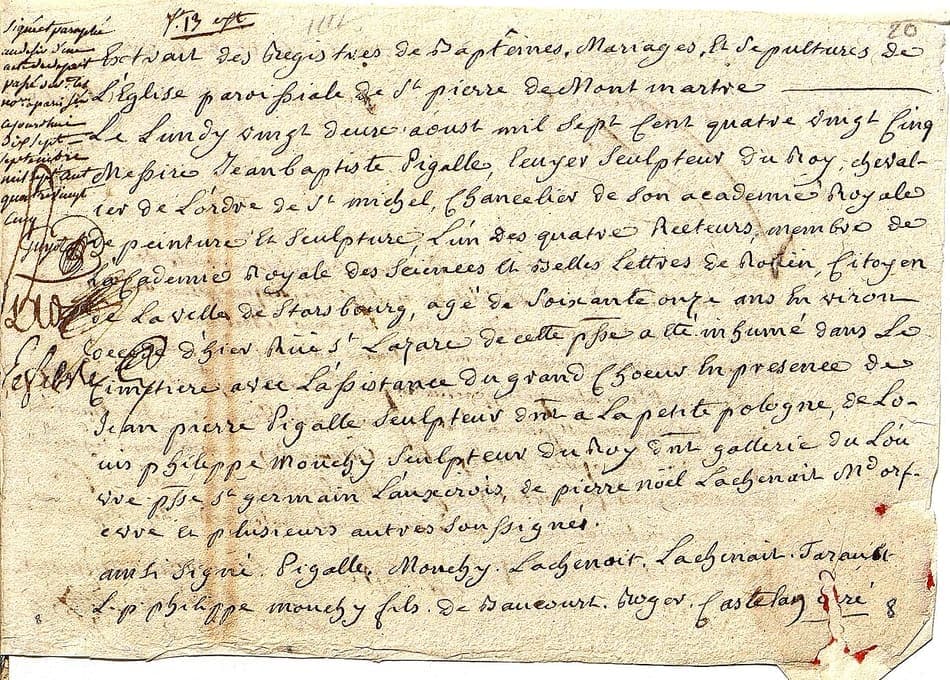 20
Signé et paraphé
au desir d'un
acte
passé
ajourdhui
Dix sept
septembre
mil sept cent
quatre vingt
Cinq
Guyot
Lefebvre
Extrait des Registres de Baptêmes, Mariages, Et Sepultures de
L'Église paroissiale de St pierre de Mont martre
Le Lundy vingt deux aoust mil Sept Cent quatre vingt Cinq
Messire Jean baptiste Pigalle, Ecuyer Sculpteur du Roy, cheval-
ier de L'ordre de St michel, Chancelier de Son academie Royale
de peinture Et Sculpture, L'un des quatre Recteurs, membre de
L'academie Royale des Sciences Et Belles Lettres de Rouen, Citoyen
de La ville de Starsbourg, agé de Soixante onze ans En viron
decedé d'hier Rüe St Lazare de cette psse a été inhumé dans Le
Cimetiere avec L'assistance du grand Choeur En presence de
Jean pierre Pigalle Sculpteur dmt a La petite pologne, de Lo-
uis philippe Mouchy Sculpteur du Roy dmt gallerie du Lou
vre psse St germain L'auxerois, de pierre noël Lachenait Md orf-
evre et plusieurs autres Soussignés.
ainsi Signé. Pigalle. Mouchy. Lachenoit. Lachenait. Tarault
L. p philippe mouchy fils. de Baucourt. Roger. Castelan curé